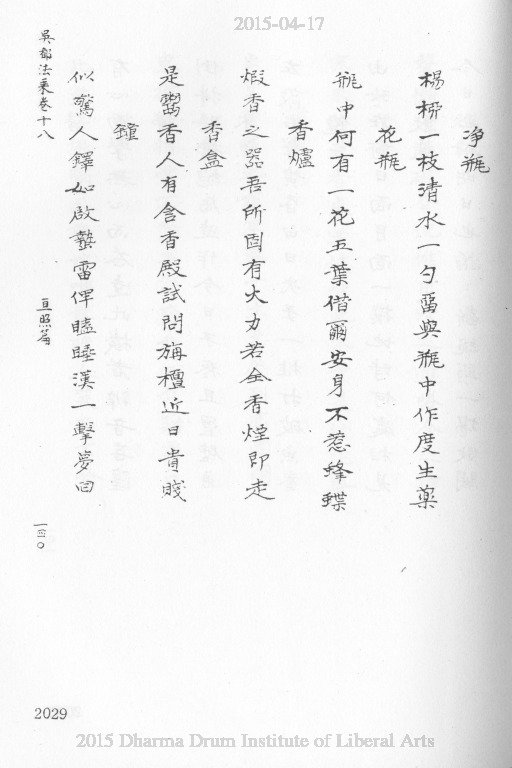 2015-04-17
净瓶
楊枬一枝清水一勺畱與瓶中作度生藥
花瓶
瓶中何有一花五葉借爾安身不惹蜂蝶
香爐
煅香之器吾所固有大力若全香煙即走
香盒
是鬻香人有含香殿試問旃檀近日貴賤
鐘
似驚人鐸如啟蟄雷俾瞌睡漢一擊夢回
吳都法乘卷十八
亘照篇
一四〇
2029
2015 Dharma Drum Institute of Liberal Arts